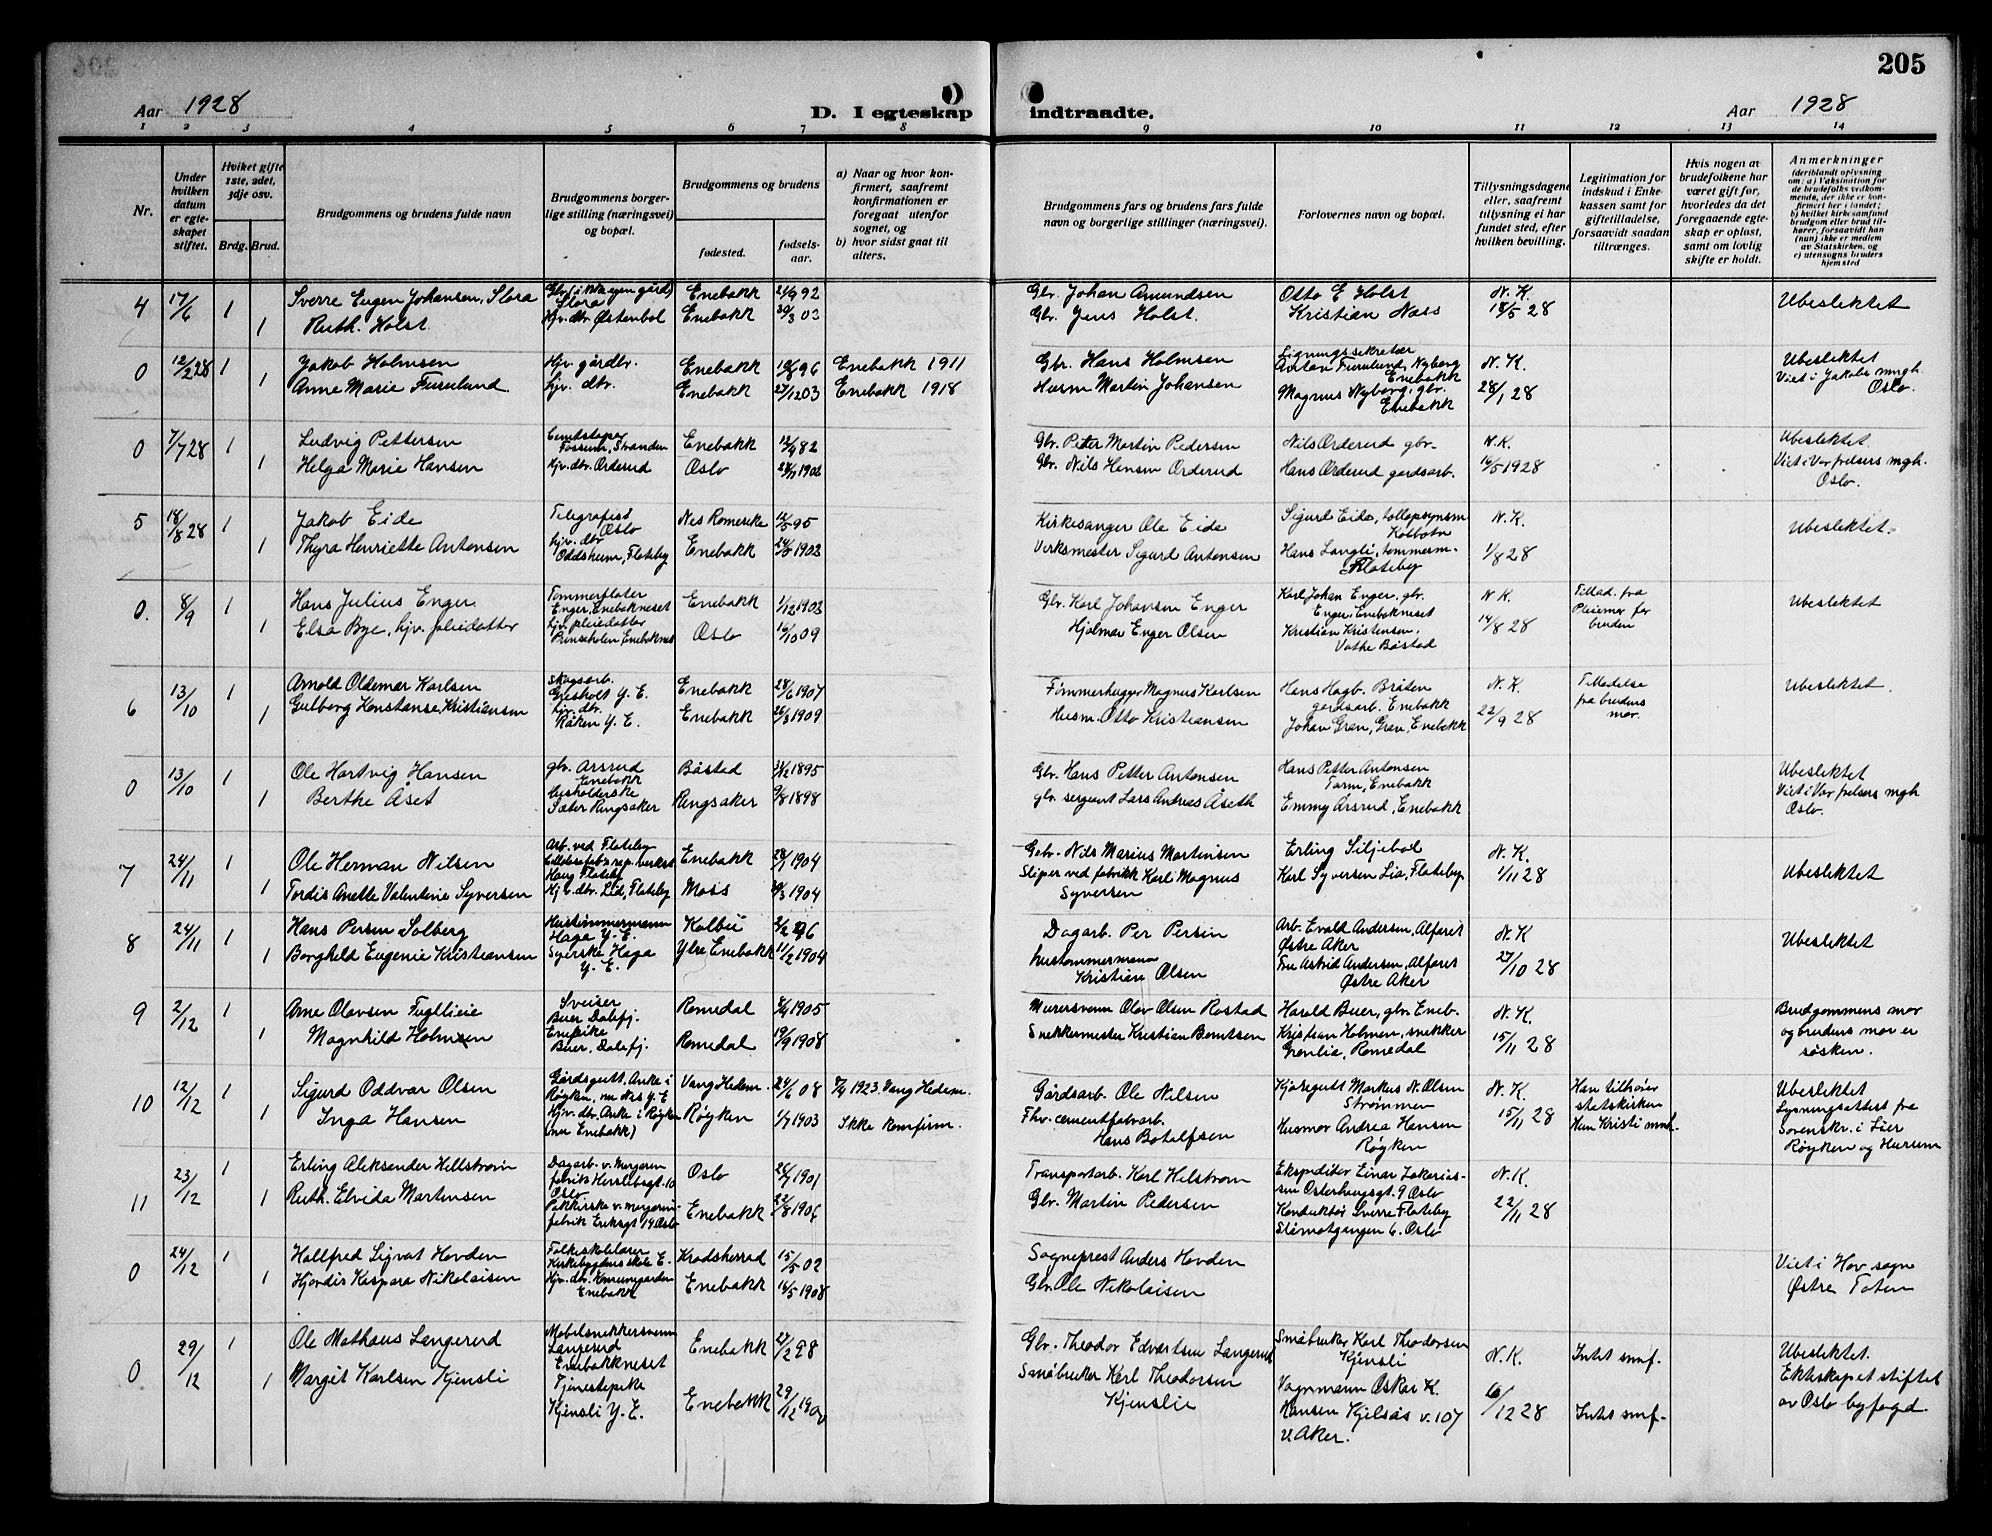 205
Aar 1928
D. I egteskap indtraadte.
Aar 1928
1 2 3 4 5 6 7 8 9 10 11 12 13 14
Nr.
Under hvilken datum er egteskapet stiftet.
Hvilket gifte 1ste, 2det, 3dje osv.
Brdg. Brud.
Brudgommens og brudens fulde navn
Brudgommens borgerlige stilling (næringsvei) og bopæl.
Brudgommens og brudens
fødested.
fødselsaar.
a) Naar og hvor konfirmert, saafremt konfirmationen er foregaat utenfor sognet, og
b) hvor sidst gaat til alters.
Brudgommens fars og brudens fars fulde navn og borgerlige stillinger (næringsvei).
Forlovernes navn og bopæl.
Tillysningsdagene eller, saafremt tillysning ei har fundet sted, efter hvilken bevilling.
Legitimation for indskud i Enkekassen samt for giftetilladelse, forsaavidt saadan tiltrænges.
Hvis nogen av brudefolkene har været gift før, hvorledes da det foregaaende egteskap er opløst, samt om lovlig skifte er holdt.
Anmerkninger (deriblandt oplysning om: a) Vaksination for de brudefolks vedkommende, der ikke er konfirmert her i landet; b) hvilket kirkesamfund brudgom eller brud tilhører, forsaavidt han (hun) ikke er medlem av Statskirken, og c) utensogns bruders hjemsted
4 17/6 1 Sverre Eugen Johansen, Slora Slora Enebakk 92 Gbr. Johan Amundsen Otto E Holst N. K. Ubeslektet
1 Ruth. Holst. Hjv. dtr. Østenbøl Enebakk 03 Gbr. Jens Holst. Kristian Næss 18/5 28
0 12/2 28 1 Jakob Holmsen Hjv. gårdbr. Enebakk 96 Enebakk 1911 Gbr. Hans Holmsen Ligningssekretær Anton Furulund, Nyborg Enebakk N. K. Ubeslektet
1 Anne Marie Furulund hjv. dtr. Enebakk 27/12 03 Enebakk 1918 Husm Martin Johansen Magnus Nyborg, gbr. Enebakk 28/1 28 Viet i Jakobs mngh. Oslo.
0 7/7 28 1 Ludvig Pettersen Fossum, Stranden Enebakk 82 Gbr. Peter Martin Pedersen Nils Orderud gbr. N. K. Ubeslektet.
1 Helga Marie Hansen Hjv. dtr. Orderud Oslo Gbr. Nils Hansen Orderud Hans Orderud gardsarb. 16/5 1928 Viet i Vor frelsers mgh. Oslo.
5 18/8 28 1 Jakob Eide Telegrafist Oslo Nes Romerike 12/5 95 Kirkesanger Ole Eide Sigurd Eide, tollopsynsm Kolbotn N. K. Ubeslektet.
1 Thyra Henriette Antonsen hjv. dtr Oddsheim, Flateby Enebakk 1903 Verksmester Sigurd Antonsen Hans Langli, tommerm. Flateby 1/8 28
0. 8/9 1 Hans Julius Enger. Tømmerfløter Enger, Enebakneset Enebakk 1/12 1903 Gbr. Karl Johansen Enger Karl Johan Enger, gbr. Enger, Enebakneset N K. Ubeslektet
1 Elsa Bye, hjv. pleiedatter hjv. pleiedatter Enebaknes Oslo 16/10 09 Hjalmar Enger Olsen Kristian Kristensen, Båstad 14/8 28 Tillad. fra Pleiemor for bruden
6 13/10 1 Arnold Oldemar Karlsen Skogsarb. Y. E. Enebakk 28/6 1907 Tømmerhugger Magnus Karlsen Hans Hagb. Bråten gardsarb. Enebakk N. K. Tilladelse fra brudens mor. Ubeslektet.
1 Gulborg Konstanse, Kristiansen hjv. dtr. Råken Y. E. Enebakk 26/3 1909 Husm. Otto Kristiansen Johan Gran, Gran, Enebakk 22/9 28
0 13/10 1 Ole Hartvig Hansen gbr. Årsrud Enebakk Båstad 1895 Gbr. Hans Petter Antonsen Hans Petter Antonsen Enebakk Ubeslektet
1 Berthe Åset Sæter Ringsaker Ringsaker 9/8 1898 gbr. sergeant Lars Andreas Åseth Emmy Årsrud, Enebakk Viet i Vor frelsers mgh Oslo.
7 24/11 1 Ole Herman Nilsen Arb. ved Flateby Haug Flateby Enebakk 28/1 1904 Gbr. Nils Marius Martinsen Erling Siljebøl N. K. Ubeslektet
1 Tordis Anette Valentine Syversen Hjv. dtr. Lid, Flateby Moss 1904 Sliper ved fabrikk Karl Magnus Syversen Karl Syversen Lia, Flateby. 1/11 28
8 24/11 1 Hans Persen Solberg Hustømmermann Haga Y. E. Kolbu Dagarb. Per Persen Arb. Evald Andersen, Alfaset Østre Aker N. K Ubeslektet
1 Borghild Eugenie Kristiansen Syerske Haga Y. E. Ytre Enebakk 11/2 1904 hustømmermann Kristian Olsen Fru Astrid Andersen, Alfaset Østre Aker 27/10 28
9 2/12 1 Arne Olavsen Fuglieie Sveiser Buer Dalefj. Romedal 1905 Murersvenn Olav Olsen Rostad Harald Buer, gbr. Eneb. N. K. Brudgommens mor og brudens mor er søsken.
1 Magnhild Holmen Buer, Dalefj. Romedal 19/9 1908 Snekkermester Kristian Berntsen Kristian Holmen, snekker Grønlia, Romedal 15/11 28
10 12/12 1 Sigurd Oddvar Olsen Gårdsgutt, Anke i Røyken, nu Nes Y. E Vang Hedem. 24/6 08 1923. Vang Hedem. Gårdsarb. Ole Nilsen Kjøregutt Markus N. Olsen Strømmen N. K. Han tilhører statskirken Ubeslektet
1 Inga Hansen Hjv. dtr. Anke i Røyken (nu Enebakk) Røyken 1/7 1903 Ikke konfirm. Fhv. cementfabarb. Hans Botolfsen Husmor Andrea Hansen Røyken 15/11 28 Hun Kristi mnh. Lysningsattest fra Sorenskr. i Lier Røyken og Hurum
11 23/12 1 Erling Aleksander Hellstrøm Dagarb. v. Margarinfabrik Herslebsgt. 10 Oslo Oslo 26/7 1901 Transportarb. Karl Hilstrøm Ekspeditør Einar Zakariassen Osterhausgt. 9 Oslo N. K.
1 Ruth. Elvida Martinsen Pakkerske v. margarinfabrik Eriksgt 19 Oslo Enebakk 22/8 1904 Gbr. Martin Pedersen Konduktør Sverre Flateby 6. Oslo 22/11 28
0 24/12 1 Hallfred Sigvat Hovden Folkeskolelærer Kirkebygdens skole E. Krødsherrad 15/5 02 Sogneprest Anders Hovden Viet i Hov sogn Østre Toten
1 Hjørdis Kaspara Nikolaisen Hjv. dtr. Enebakk Enebakk 16/5 1908 Gbr. Ole Nikolaisen
0 29/12 1 Ole Mathæus Langerud Møbelsnekkersvenn Langerud Enebakkneset Enebakk Gbr. Theodor Edvartsen Langerud Småbruker Karl Theodorsen Kjensli N. K. Intet smf. Ubeslektet.
1 Margit Karlsen Kjensli Tjenestepike Kjensli Y. E. Enebakk 29/12 Småbruker Karl Theodorsen Kjenslie Vognmann Oskar K. Hansen Kjelsås v. 107 V. Aker. 6/12 28 Intet smf. Ekteskapet stiftet av Oslo byfogd.